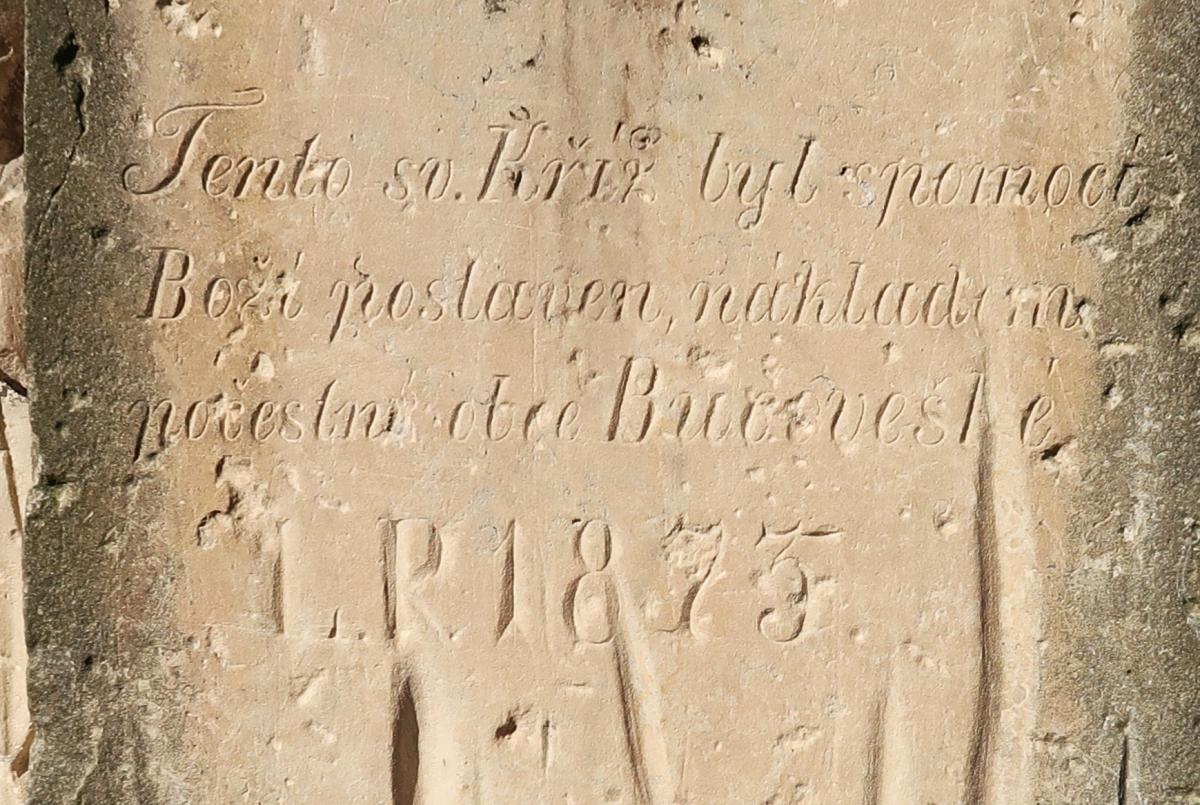 Tento sv. Kříž byl spomocí
Boží postaven, nákladem
počestné obce Bučoveské
L.P. 1875